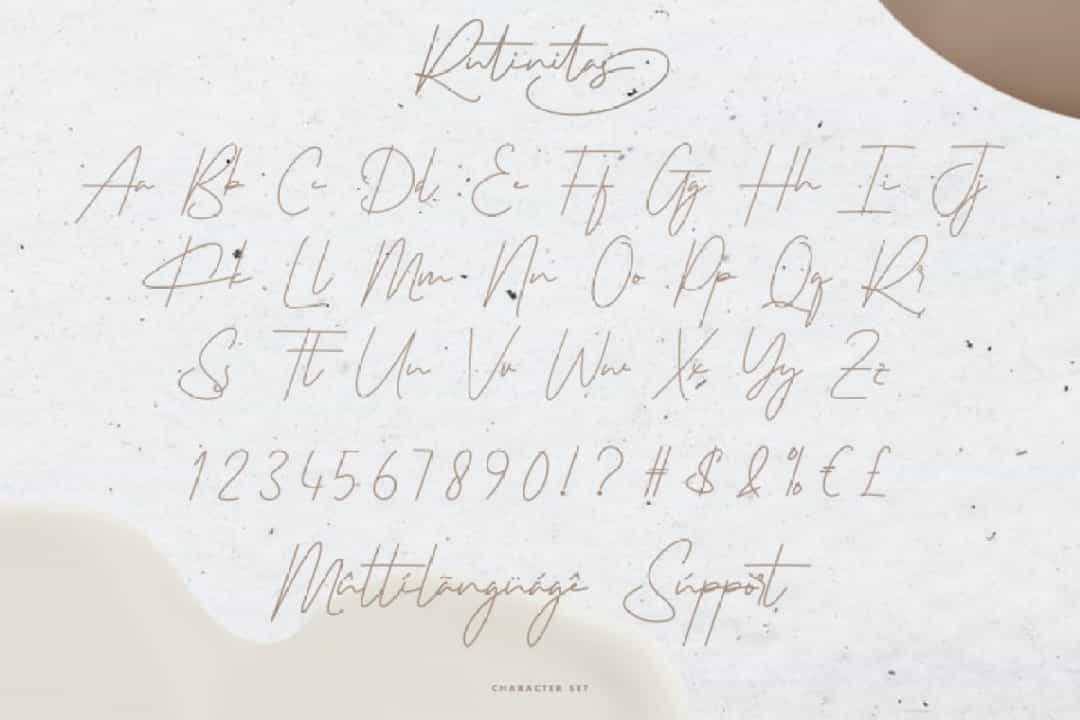 Rutinitas
Aa Bb Cc Dd Ee Ff Gg Hh Ii Jj
Kk Ll Mm Nn Oo Pp Qq Rr
Ss Tt Uu Vv Ww Xx Yy Zz
1 2 3 4 5 6 7 8 9 0 ! ? # $ & % € £
Mûltílãngüágê Súppört
CHARACTER SET